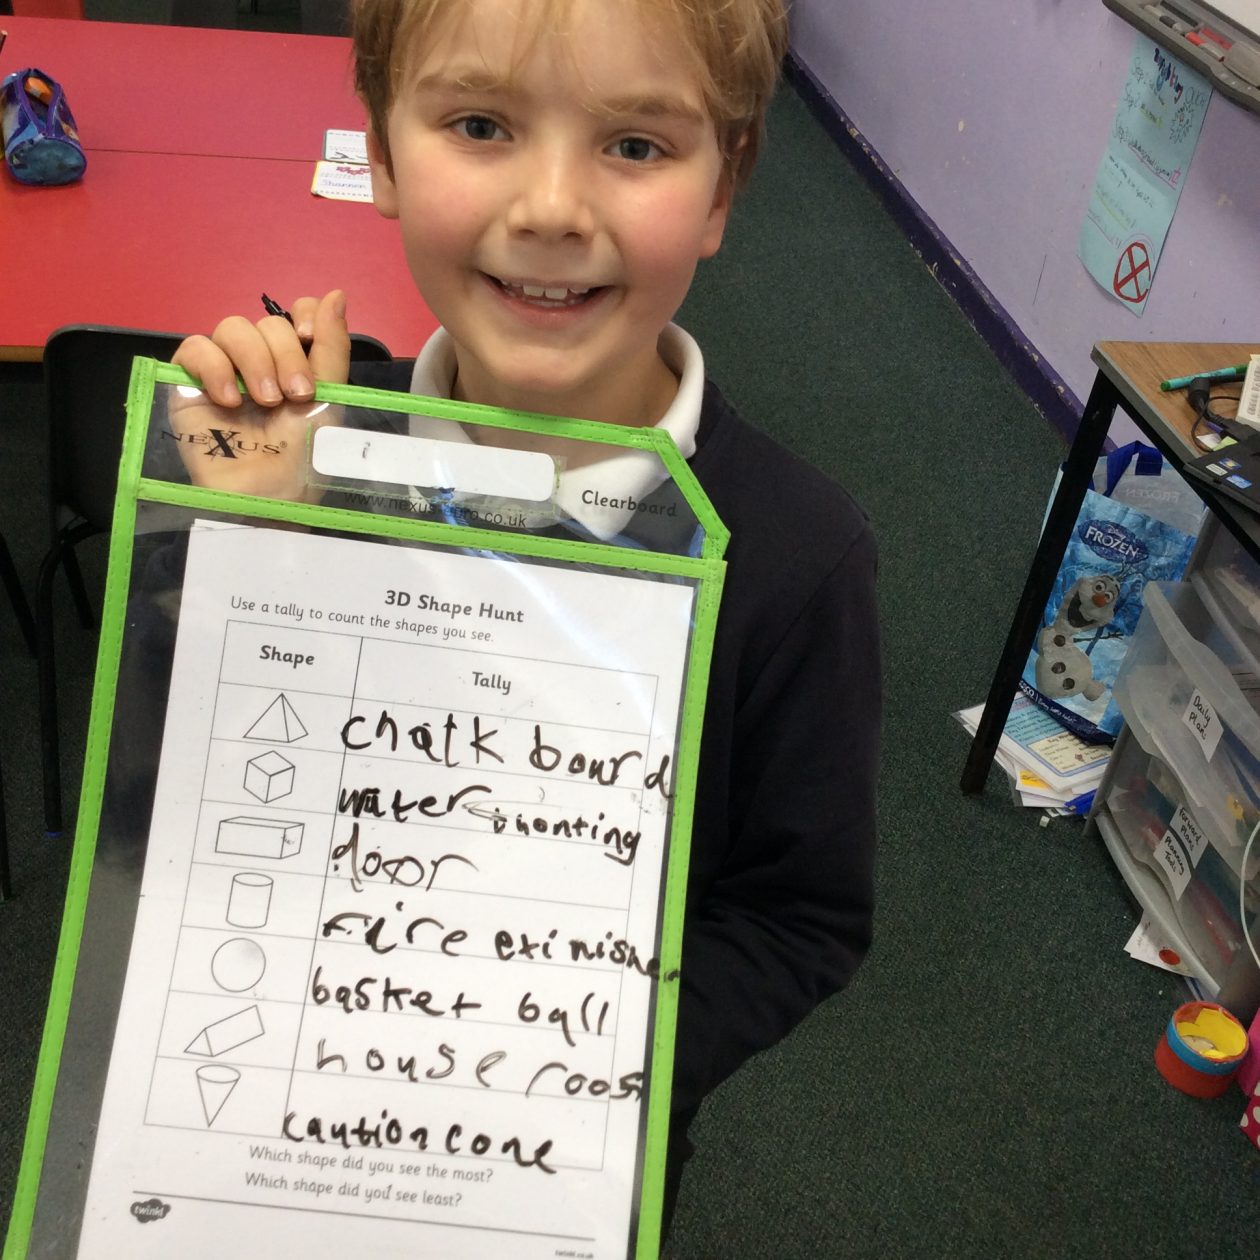 NEXUS®
Clearboard
3D Shape Hunt
Use a tally to count the shapes you see.
Shape
Tally
chalk board
water
door
fire eximisher
basket ball
house roof
caution cone
Which shape did you see the most?
Which shape did you see least?
twinkl
twinkl.co.uk
Shannen
Disney
FROZEN
Daily
Plans
Forward
Plans
Planning
Tools